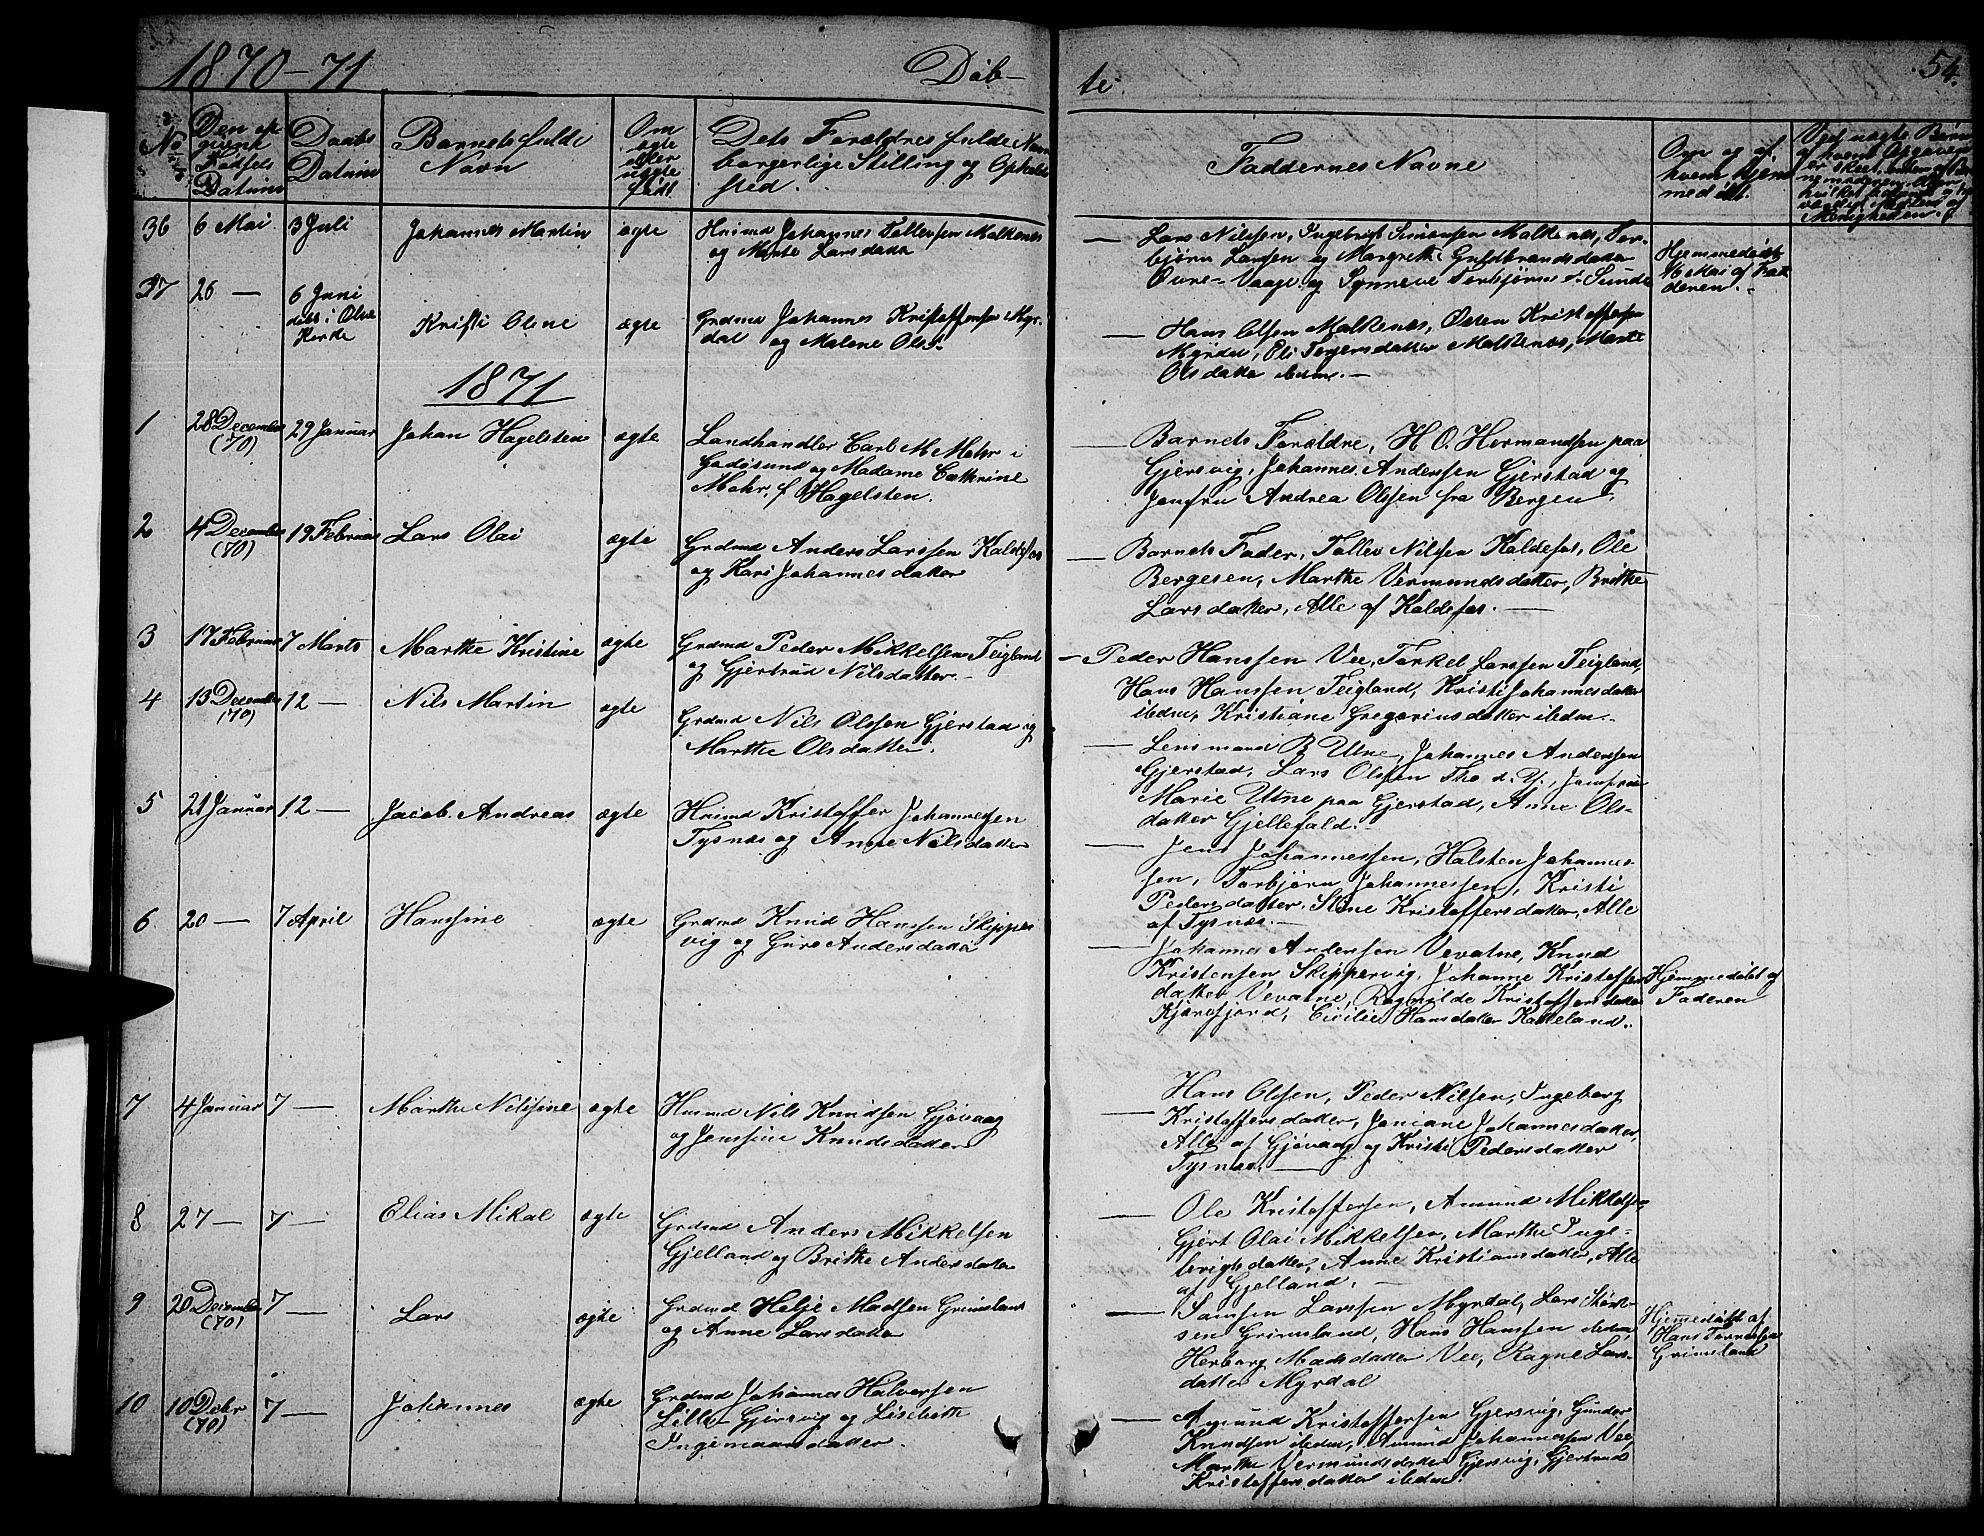 1870-71
Døb-
te.
54.
No
Den op
givne
Fødsels
Datum
Daabs
Datum
Barnets fulde
Navn
Om
ægte
eller
uægte
født
Dets Forældres fulde Navn
borgerlige Stilling og Opholds
sted.
Faddernes Navne
Om og af
hvem hjem
med
36 6 Mai 3 Juli Johannes Martin ægte
Husmd Johannes Tollevsen Malkenes
og Marte Larsdatter
Lars Nilssen, Ingebrigt Simonsen Malkenes, Tor-
bjørn Larssen og Margrethe Guldbrandsdatter
Øvre-Vaage og Synneve Torbjørns d. Sunde
Hjemmedøbt
16 Mai af Fa-
deren.
37 26 — 6 Juni
døbt i Olve
Kirke
Kristi Oline ægte
Grdmd Johannes Kristoffersen Myr-
dal og Malene Olsd.
Hans Olsen Malkenes, Østen Kristoffersen
Myrdal, Eli Torgersdatter Malkenes, Marte
Olsdatter ibidm.
1871
1 28 December
(70)
29 Januar Johan Hagelsten ægte
Landhandler Carl M. Mohr i
Godøsund og Madame Cathrine
Mohr, f. Hagelsten.
Barnets Forældre, H. O. Hermandsen paa
Gjersvig, Johannes Anderssen Gjerstad og
Jomfru Andrea Olssen fra Bergen.
2 4 December
(70)
19 Februar Lars Olai ægte
Grdmd Anders Larssen Kaldefos
og Kari Johannesdatter
Barnets Fader, Tollev Nilssen Kaldefos, Ole
Bergesen, Marthe Vermundsdatter, Brithe
Larsdatter, Alle af Kaldefos.
3 17 Februar 7 Marts Marthe Kristine ægte
Grdmd Peder Mikkelsen Teigland
og Gjertrud Nilsdatter.
Peder Hanssen Vee, Torkel Larssen Teigland,
Hans Hanssen Teigland, Kristi Johannesdatter
ibidm, Kristiane Gregoriusdatter ibidm.
4 13 December
(70)
12 — Nils Martin ægte
Grdmd Nils Olssen Gjerstad og
Marthe Olsdatter.
Lensmand B. Utne, Johannes Anderssen
Gjerstad, Lars Olssen Thø d. Y., Jomfru
Marie Utne paa Gjerstad, Anne Ols-
datter Gjellefald.
5 21 Januar 12 — Jacob Andreas ægte
Husmd Kristoffer Johannessen
Tysnæs og Anne Nilsdatter
Jens Johannessen, Halsten Johannes-
sen, Torbjørn Johannessen, Kristi
Pedersdatter, Stine Kristoffersdatter, Alle
af Tysnæs.
6 20 — 7 April Hanssine ægte
Grdmd Knud Hanssen Skipper-
vig og Guro Andersdatter
Johannes Anderssen Vevatne, Knud
Kristensen Skippervig, Johanne Kristoffers
datter Vevatne, Ragnilde Kristoffersdatter
Kjærefjord, Cicilie Hansdatter Kakeland.
Hjemmedøbt af
Faderen
7 4 Januar 7 — Marthe Nilssine ægte
Husmd Nils Knudsen Gjøvaag
og Jenssine Knudsdatter
Hans Olssen, Peder Nilsen, Ingeborg
Kristoffersdatter, Janiane Johannesdatter,
Alle af Gjøvaag og Kristi Pedersdatter
Tysnæs.
8 27 — 7 — Elias Mikal ægte
Grdmd Anders Mikkelsen
Gjelland og Brithe Andersdatter
Ole Kristoffersen, Amund Mikkelsen
Gjert Olai Mikkelsen, Marthe Inge-
brigtsdatter, Anne Kristiansdatter, Alle
af Gjelland.
9 20 December
(70)
7 — Lars ægte
Grdmd Helje Madsen Grimsland
og Anne Larsdatter
Samsen Larssen Myrdal, Lars
sen Grimsland, Hans Hanssen ibidm,
Herborg Madsdatter Vee, Ragne Lars-
datter Myrdal
Hjemmedøbt af
Hans
Grimsland
10 10 Debr
(70)
7 — Johannes ægte
Grdmd Johannes Halversen
Lille-Gjersvig og Lisbeth
Ingemaarsdatter.
Amund Kristoffersen Gjersvig, Gunder
Knudsen ibidm, Amund Johannessen Vee,
Marthe Vermundsdatter Gjersvig, Gjertrud
Kristoffersdatter ibidm.